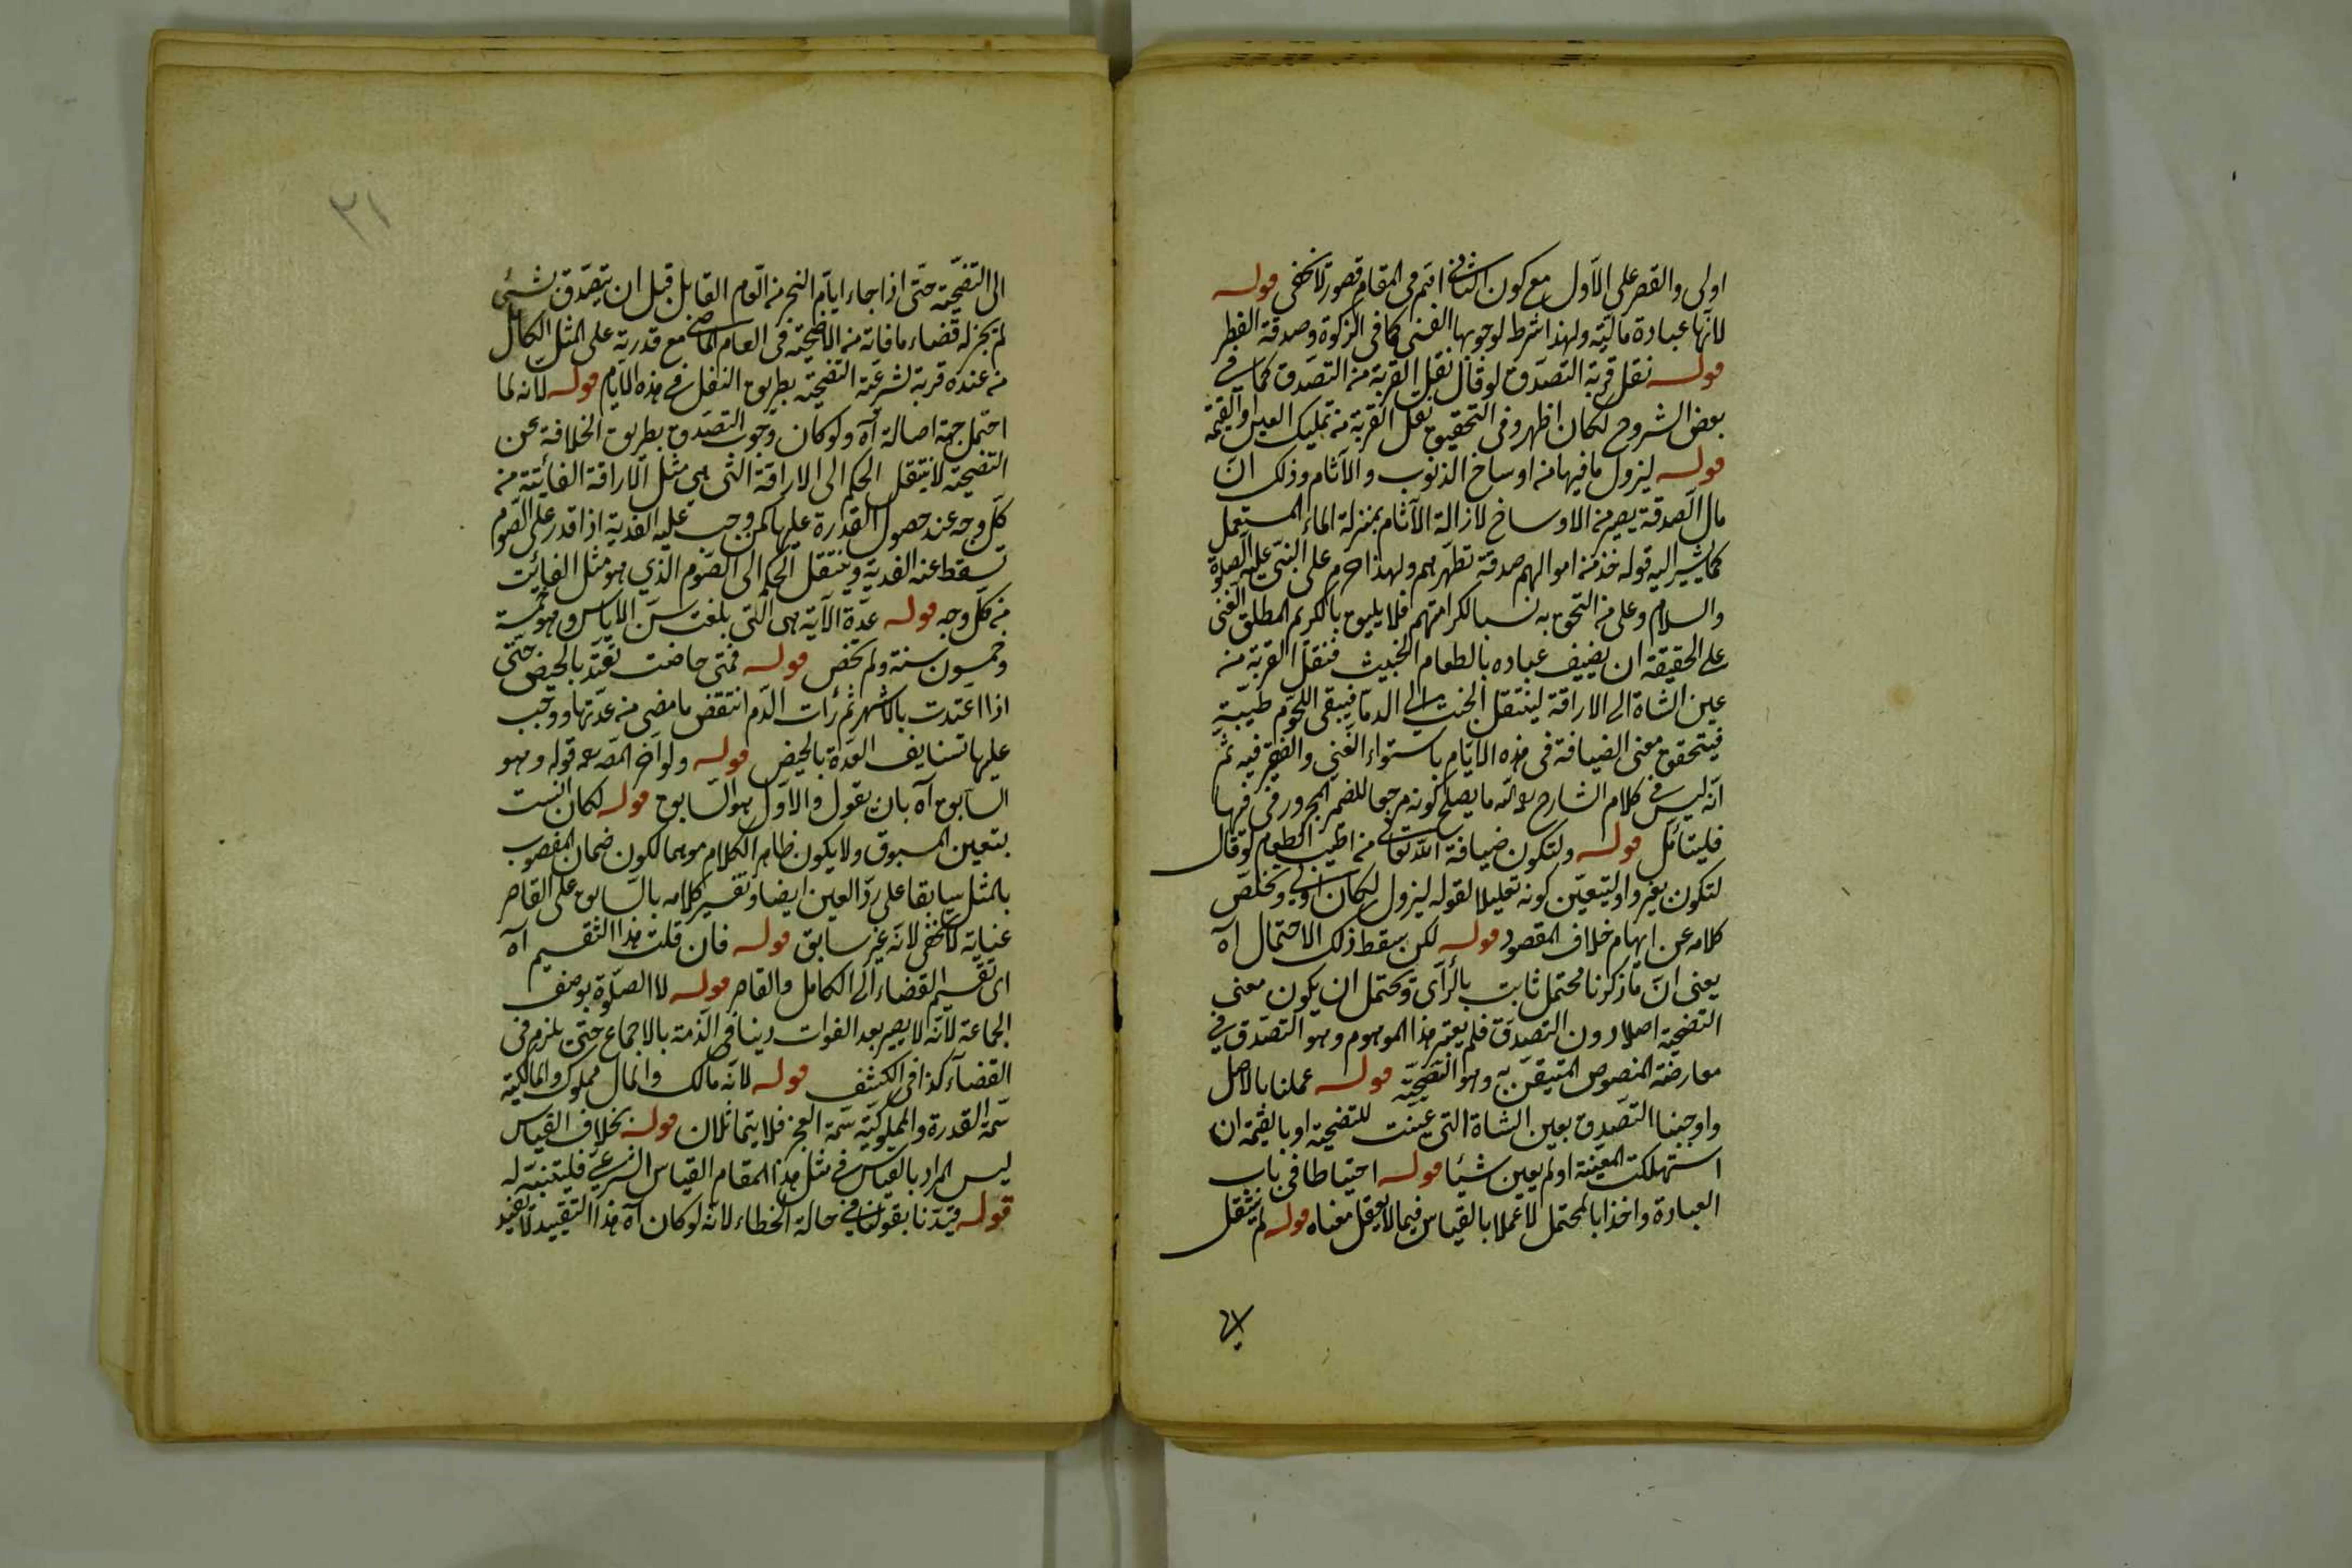 اولى والقصر على الاول مع كون الثانى اتم فى المقام قصور لا يخفى قوله
لانها عبادة مالية ولهذا شرط لوجوبها الغنى كما فى الزكوة وصدقة الفطر
قوله نقل قربة التصدق لو قال نقل القربة من التصدق كما فى
بعض الشروح لكان اظهر وفى التحقيق نقل القربة من تمليك العين او القيمة
قوله ليزول ما فيها من اوساخ الذنوب والآثام وذلك ان
مال الصدقة يصير من الاوساخ لازالة الآثام بمنزلة الماء المستعمل
كما يشير اليه قوله خذ من اموالهم صدقة تطهرهم ولهذا حرم على النبى عليه الصلوة
والسلام وعلى من التحق به نسبا لكرامتهم فلا يليق بالكريم المطلق الغنى
على الحقيقة ان يضيف عباده بالطعام الخبيث فنقل القربة من
عين الشاة الى الاراقة لينتقل الخبث الى الدماء فيبقى اللحوم طيبة
فيتحقق معنى الضيافة فى هذه الايام باستواء الغنى والفقير فيه ثم
انه ليس فى كلام الشارح رحمه الله ما يصلح كونه مرجعا للضمير المجرور فى فيها
فليتأمل قوله ولتكون ضيافة الله تعالى من اطيب الطعوم لو قال
لتكون بغير واو لتيعين كونه تعليلا لقوله ليزول لكان اولى ويخلص
كلامه عن ايهام خلاف المقصود قوله لكن سقط ذلك الاحتمال آه
يعنى ان ما ذكرنا محتمل ثابت بالرأى ويحتمل ان يكون معنى
التضحية اصلا دون التصدق فلم يعتبر هذا الموهوم وهو التصدق فى
معارضة المنصوص المتيقن به وهو التضحية قوله عملنا بالاصل
واوجبنا التصدق بعين الشاة التى عينت للتضحية او بالقيمة ان
استهلكت المعينة او لم يعين شيئا قوله احتياطا فى باب
العبادة واخذا بالمحتمل لا عملا بالقياس فيما لا يعقل معناه قوله لم ينتقل
الى
٣١
الى التضحية حتى اذا جاء ايام النحر من العام القابل قبل ان يتصدق بشئ
لم يجز له قضاء ما فاته من الاضحية فى العام الماضى مع قدرته على المثل الكامل
من عنده قربة لشرعية التضحية بطريق النفل فى هذه الايام قوله لانه لما
احتمل جهة اصالة آه ولو كان وجوب التصدق بطريق الخلافة عن
التضحية لانتقل الحكم الى الاراقة التى هى مثل الاراقة الفائتة من
كل وجه عند حصول القدرة عليها كمن وجب عليه الفدية اذا قدر على الصوم
تسقط عنه الفدية وينتقل الحكم الى الصوم الذي هو مثل الفائت
من كل وجه قوله عدة الآية هى التى بلغت سن الاياس وهو خمسة
وخمسون سنة ولم تحض قوله فمتى حاضت تعتد بالحيض حتى
اذا اعتدت بالاشهر ثم رأت الدم انتقض ما مضى من عدتها ووجب
عليها تستانف العدة بالحيض قوله ولو اخر المص رحمه قوله وهو
السابق آه بان يقول والاول هو السابق قوله لكان انسب
بتعيين المسبوق ولا يكون ظاهر الكلام موهما لكون ضمان المغصوب
بالمثل سابقا على رد العين ايضا وتفسير كلامه بالسابق على القاصر
عناية لا يخفى لانه غير سابق قوله فان قلت هذا التقسيم آه
اى تقسيم القضاء الى الكامل والقاصر قوله لا الصلوة بوصف
الجماعة لانه لا يصير بعد الفوات دينا فى الذمة بالاجماع حتى يلزم فى
القضاء كذا فى الكشف قوله لانه مالك والمال مملوك والمالكية
سمة القدرة والمملوكية سمة العجز فلا يتماثلان قوله بخلاف القياس
ليس المراد بالقياس فى مثل هذا المقام القياس الشرعى فليتنبه له
قوله قيدنا بقولنا فى حالة الخطاء لانه لو كان آه هذا التقييد لا يفيد